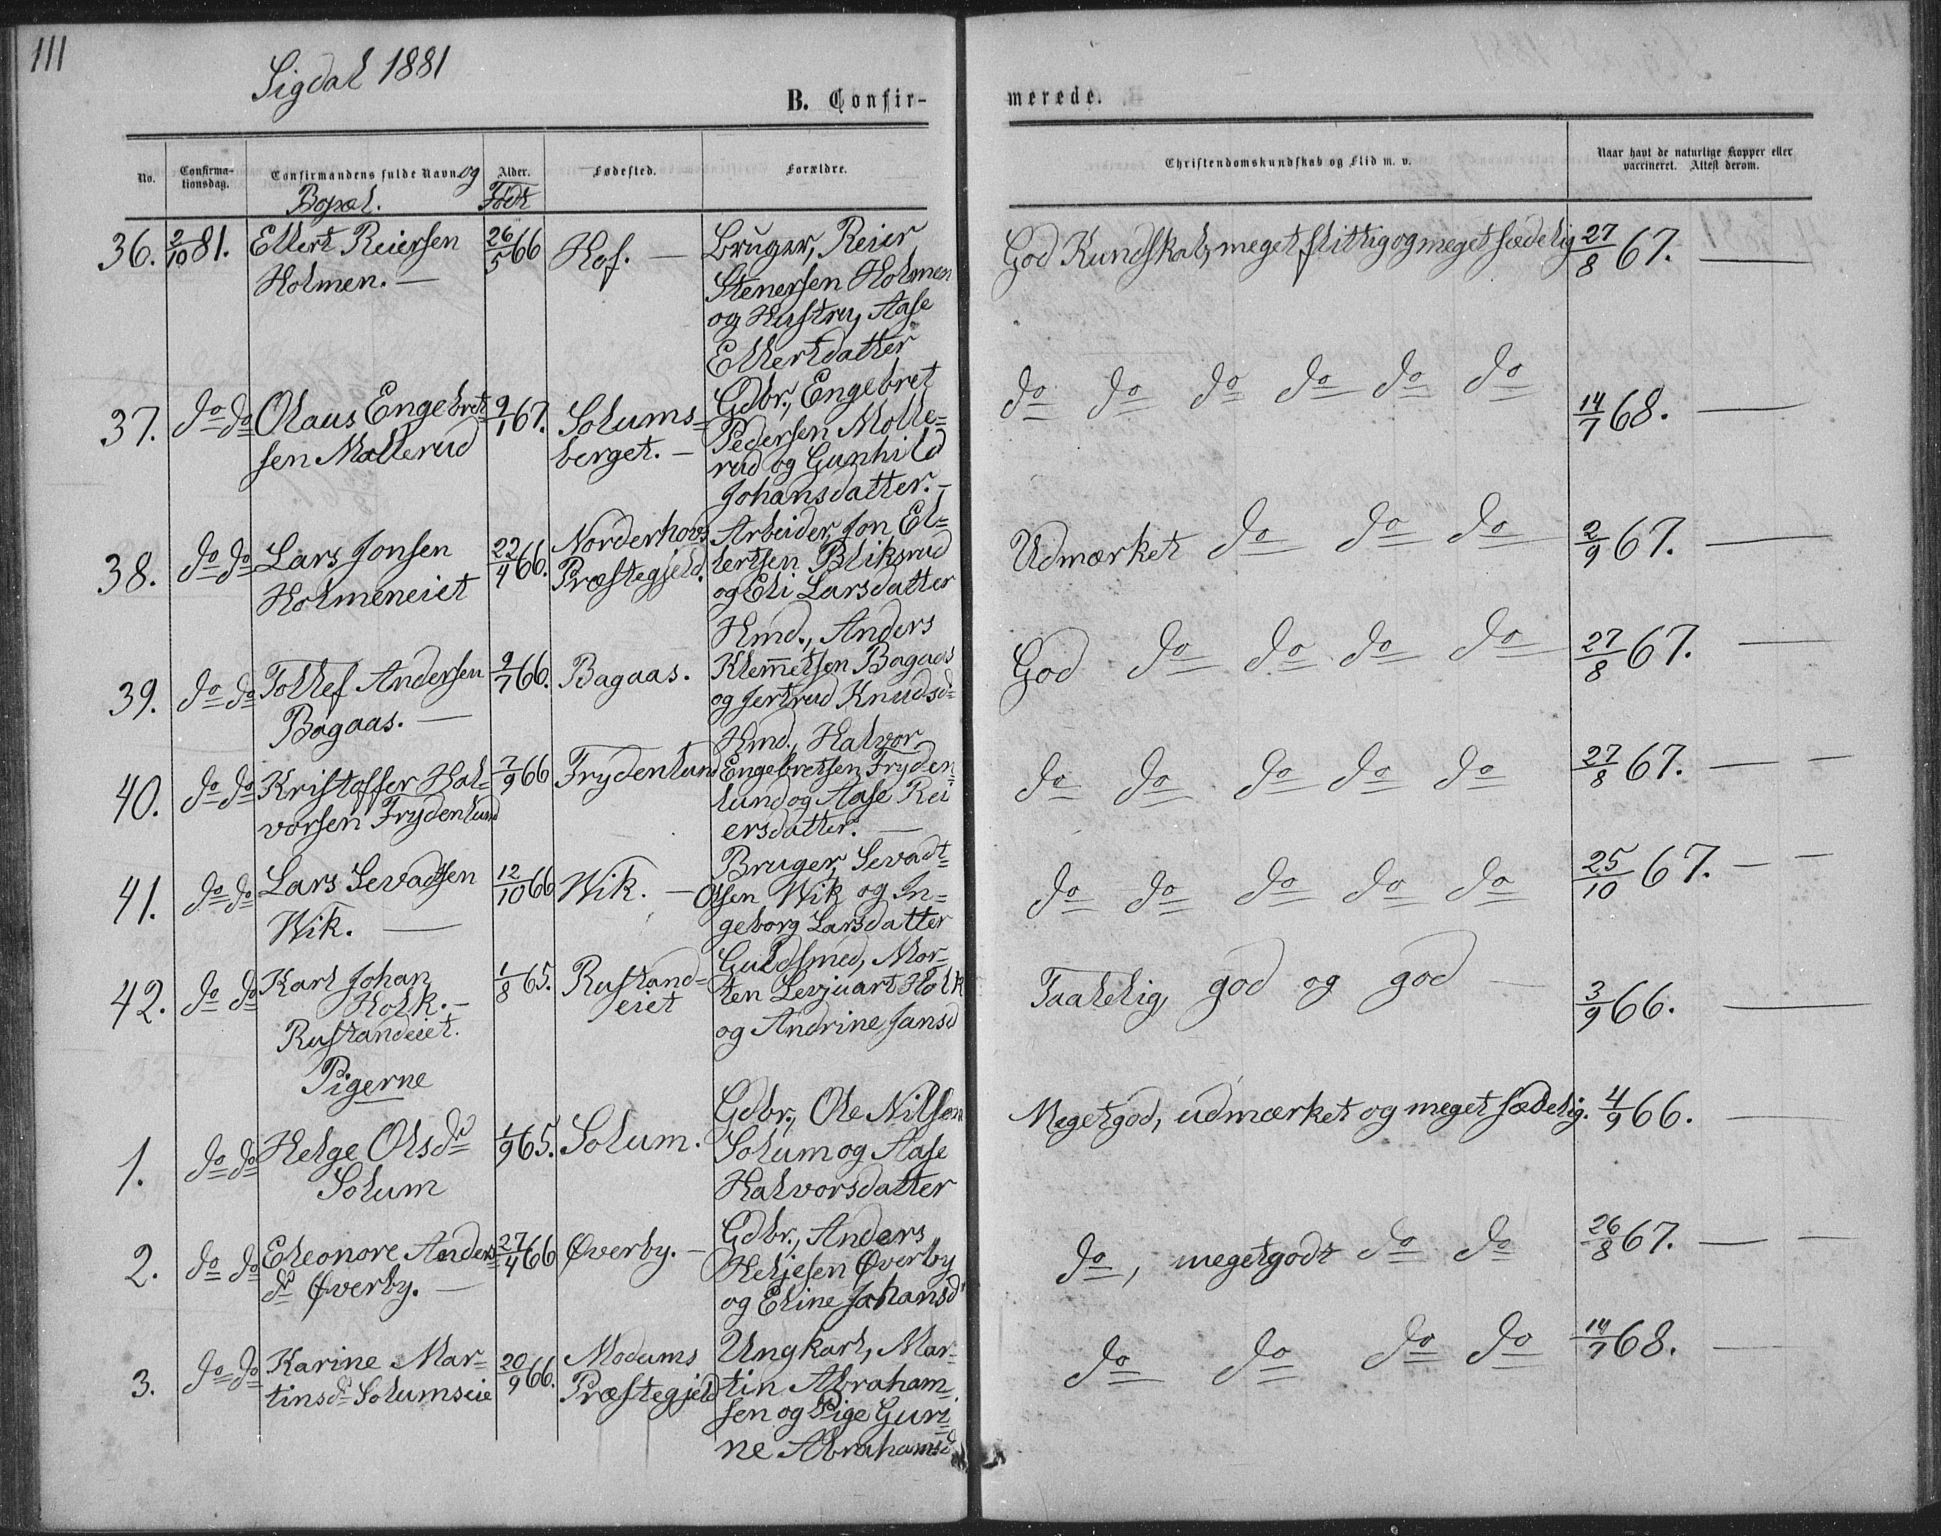 111
Sigdal 1881
B. Confir-
merede.
No.
Confirma-
tionsdag.
Confirmandens fulde Navn og
Bopæl.
Alder.
Født
Fødested.
Forældre.
Christendomskundskab og Flid m. v.
Naar havt de naturlige Kopper eller
vaccineret. Attest derom.
36. 2/10 81. Ellert Reiersen
Holmen. —
26/5 66 Hof. —
Bruger, Reier
Stenersen Holmen
og Hustru, Aase
Ellertdatter
God Kundskab, meget flittig og meget sædelig 27/8 67. —
37. do do Olaus Engebret
sen Mollerud
9/1 67. Solums=
berget. —
Gdbr., Engebret
Pedersen Molle=
rud og Gunhild
Johansdatter. —
do do do do do do
14/7 68. —
38. do do Lars Jonsen
Holmeneiet
22/4 66. Norderhovs
Præstegjeld.
Arbeider, Jon El=
lertsen Bliksrud
og Eli Larsdatter
Udmærket do do do 2/9 67. —
39. do do Tollef Andersen
Bagaas. —
9/7 66. Bagaas.
Hmd., Anders
Klemmetsen Bagaas
og Jertrud Knudsd=
God do do do do 27/8 67. —
40. do do Kristoffer Hal=
vorsen Frydenlund
7/9 66 Frydenlund
Hmd., Halvor
Engebretsen Fryden=
lund og Aase Rei
ersdatter. —
do do do do do 27/8 67. — —
41. do do Lars Sevadtsen
Wik. —
12/10 66 Wik. —
Bruger, Sevadt=
Olsen Wik og In=
geborg Larsdatter
do do do do do 25/10 67. — —
42. do do Karl Johan
Holk. —
Rustandeiet.
1/8 65. Rustand=
eiet
Guldsmed, Mor=
ten Levjuart Holk
og Andrine Jansd
Taalelig, god og god — 3/9 66. —
Pigerne
1. do do Helge Olsdr
Solum
1/9 65. Solum.
Gdbr., Ole Nilsen
Solum og Aase
Halvorsdatter
Megetgod, udmærket og meget sædelig. 4/9 66. —
2. do do Eleonore Anders
dr Øverby. —
27/4 66 Øverby. —
Gdbr., Anders
Heljesen Øverby
og Eline Johansd
do, megetgodt do do 26/8 67. — —
3. do do Karine Mar=
tinsdr Solumseie
20/9 66. Modums
Præstegjeld
Ungkarl, Mar=
tin Abraham
sen og Pige Guri
ne Abrahamsd
do do do do 14/7 68. —